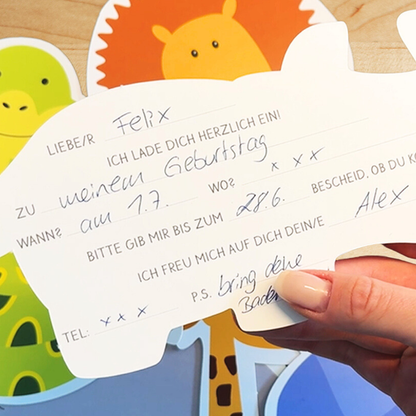 LIEBE/R Felix
ICH LADE DICH HERZLICH EIN!
ZU meinem Geburtstag
WANN? am 1.7. WO? x x x
BITTE GIB MIR BIS ZUM 28.6. BESCHEID, OB DU KO
ICH FREU MICH AUF DICH DEIN/E Alex
P.S. bring deine
TEL: x x x Bade